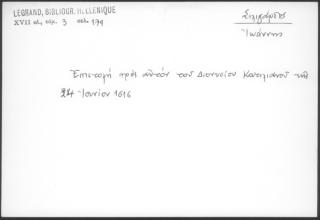 LEGRAND, BIBLIOGR. HELLENIQUE
XVII αἰ, τόμ. 3 σελ. 199
Ἰωάννης
Ἐπιστολή πρός αὐτόν τοῦ Διονυσίου Κατιλιανοῦ τῆς
24 Ἰουνίου 1616